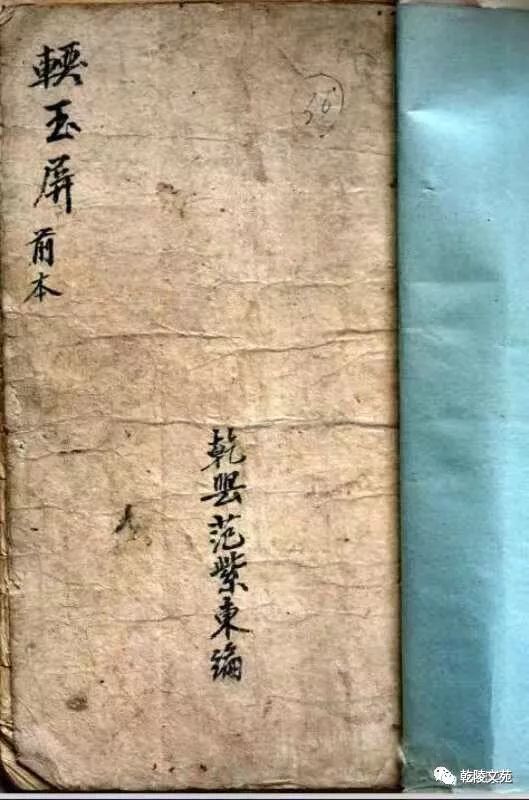 輭玉屏 前本
乾县范紫東編
乾陵文苑